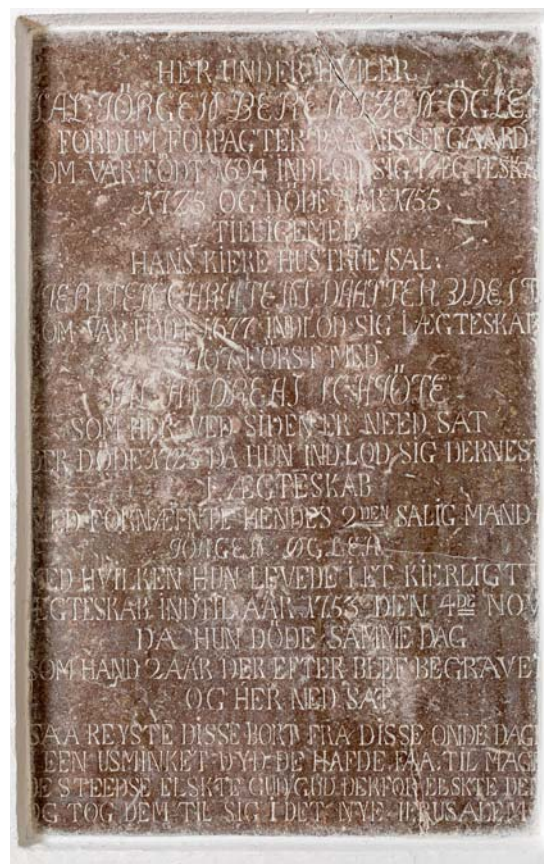 HER UNDER HVILER
SAL JÖRGEN BERENTZEN ÖGLE
FORDUM FORPAGTER PAA NISLEFGAARD
SOM VAR FÖDT 1694 INDLOD SIG I ÆGTESKA
1725 OG DÖDE AAR 1755
TILLIGEMED
HANS KIERE HUSTRUE SAL:
DAATTER
SOM VAR FÖDT 1677 INDLOD SIG I ÆGTESKAB
1707 FÖRST MED
ANDREAS SCHIÖTE
SOM HER VED SIDEN ER NEED SAT
DER DÖDE 1725 DA HUN INDLOD SIG DERNEST
I ÆGTESKAB
MED FORNÆFNTE HENDES 2DEN SALIG MAND
JÖRGEN ÖGLER
MED HVILKEN HUN LEVEDE I ET KIERLIGT
ÆGTESKAB INDTIL AAR 1753 DEN 4DE NOV
DA HUN DÖDE SAMME DAG
SOM HAND 2 AAR DER EFTER BLEF BEGRAVET
OG HER NED SAT
SAA REYSTE DISSE BORT FRA DISSE ONDE DAG
EEN USMINKET DYD DE HAFDE FAA TIL MAG
DE STEEDSE ELSKTE GUD GUD DERFOR ELSKTE DE
OG TOG DEM TIL SIG I DET NYE IERUSALEM